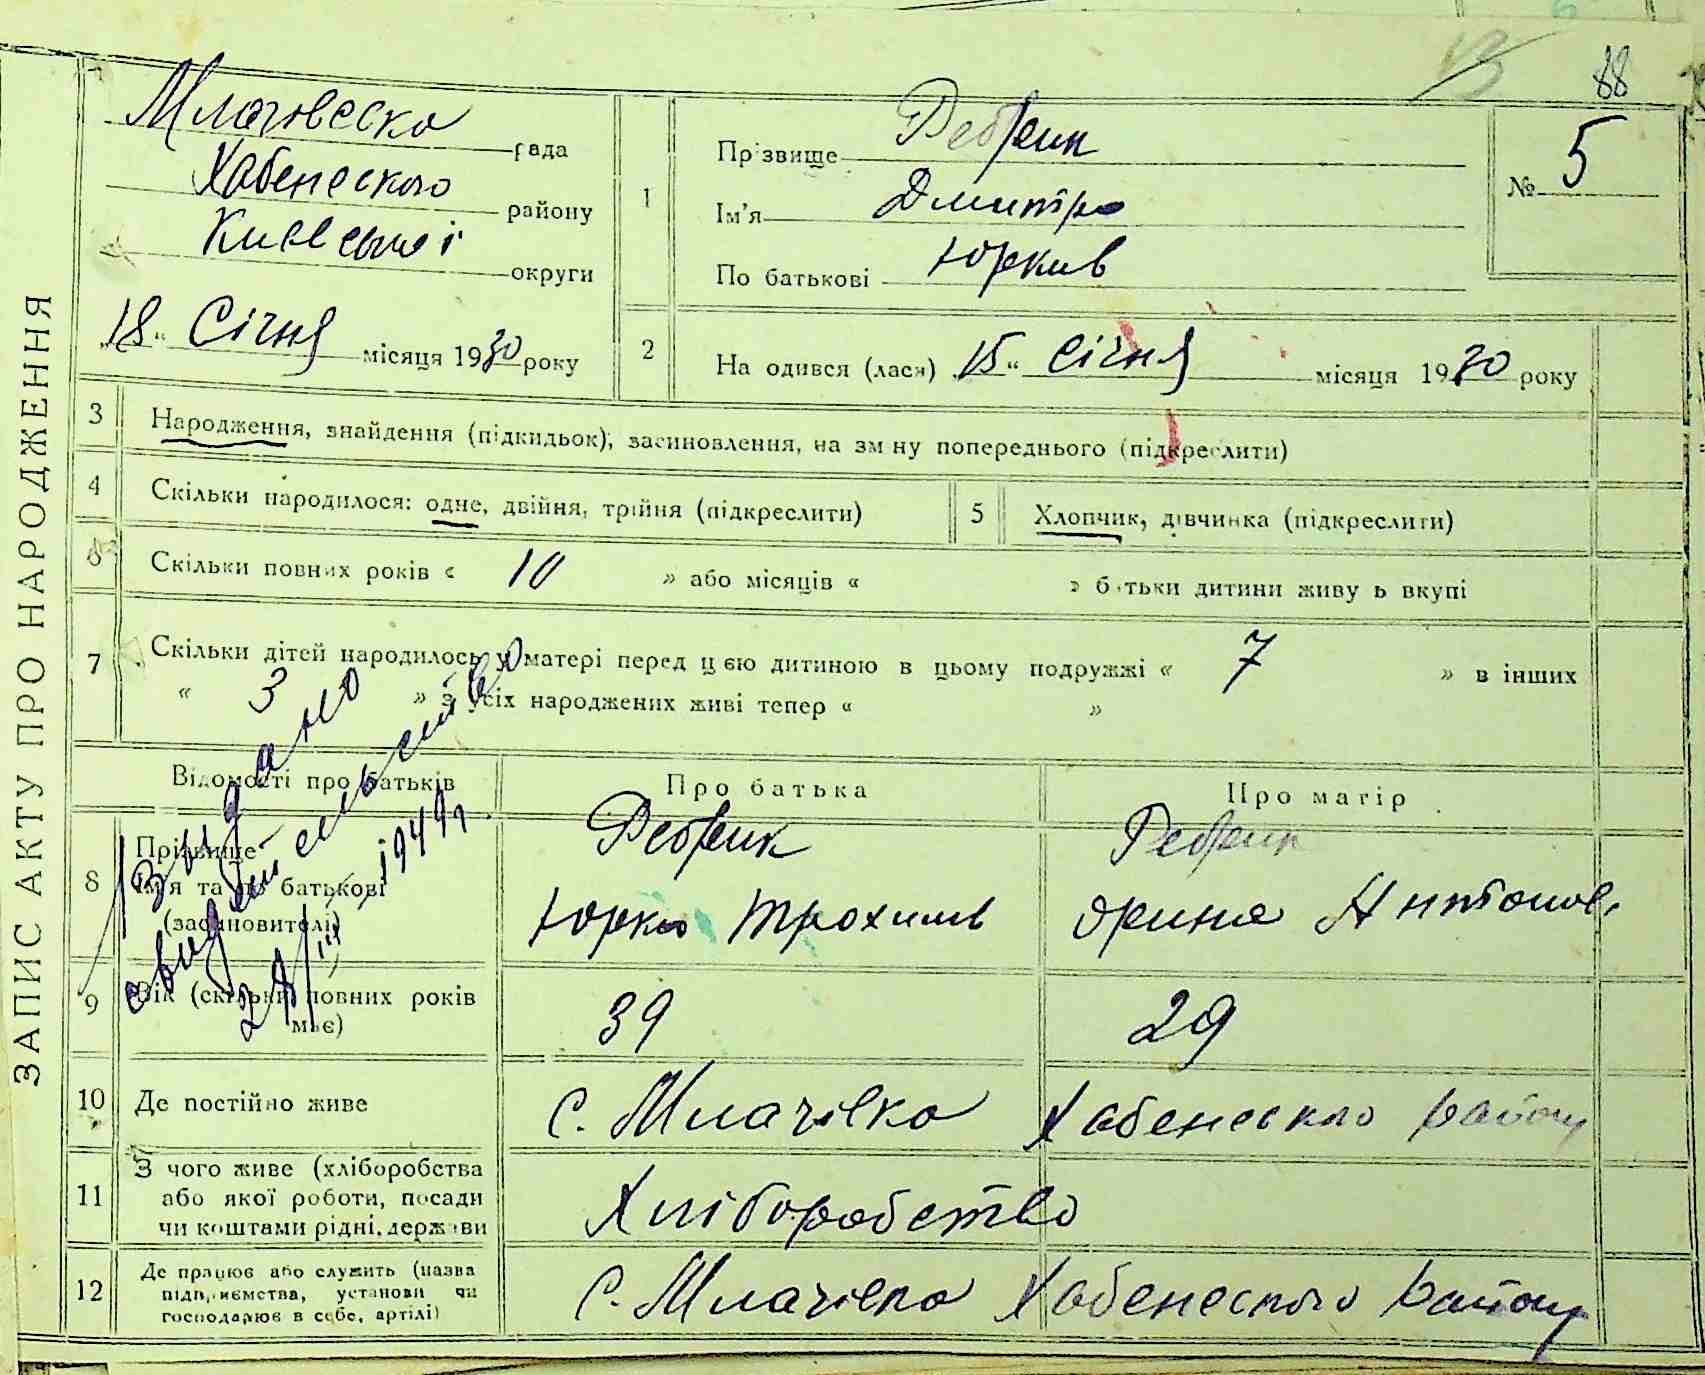 88
ЗАПИС АКТУ ПРО НАРОДЖЕННЯ
Млачовсска рада
Хабенського району
Київської округи
„18“ Січня місяця 1930 року
1
Прізвище Ребрик
Ім'я Дмитро
По батькові Юрків
№ 5
2
На одився (лася) „15“ Січня місяця 1930 року
3 Народження, знайдення (підкидьок), засиновлення, на зм ну попереднього (підкреслити)
4 Скільки народилося: одне, двійня, трійня (підкреслити)
5 Хлопчик, дівчинка (підкреслити)
6 Скільки повних років « 10 » або місяців « » б тьки дитини живу ь вкупі
7 Скільки дітей народилось у матері перед цією дитиною в цьому подружжі « 7 » в інших
« 3 » з усіх народжених живі тепер « »
Відомості про батьків Про батька Про матір
8 Прізвище Ребрик Ребрик
Ім'я та по батькові
(засиновителі) Юрко Трохимів Орина Антонов.
Выдано
свидетельство
29/III 1949 г.
9 Вік (скільки повних років має) 39 29
10 Де постійно живе с. Млачівка Хабенеского району
11 З чого живе (хліборобства
або якої роботи, посади
чи коштами рідні, держави Хліборобство
12 Де працює або служить (назва
підприємства, установи чи
господарює в себе, артілі) с. Млачівка Хабенеского району